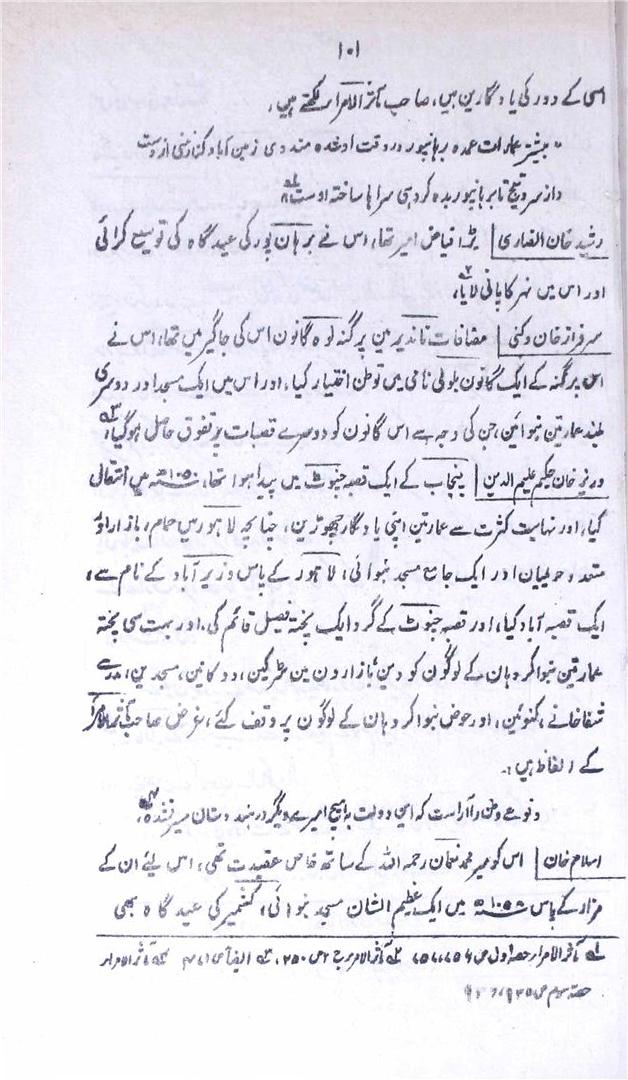 ۱۰۱
اسی کے دور کی یادگارین ہیں، صاحب مآثر الامراء لکھتے ہیں،
"بیشتر عمارات عمدہ برہانپور در وقت او شدہ مندوی زمین آباد کنارندی از وست
و از سرونج تا برہانپور بدہ کردہی سراہا ساختہ اوست"
رشید خان الضاری | بڑا فیاض امیر تھا، اس نے برہان پور کی عیدگاہ کی توسیع کرائی
اور اس میں نہر کا پانی لایا،
سرفراز خان دکنی | مضافات ناندیر مین پرگنہ لوہ گانون اس کی جاگیر میں تھا، اس نے
اس پرگنہ کے ایک گانون بلولی نامی میں توطن اختیار کیا، اور اس میں ایک مسجد اور دوسری
بلند عمارتین بنوائین، جن کی وجہ سے اس گانون کو دوسرے قصبات پر تفوق حاصل ہوگیا،
وزیر خان حکیم علیم الدین | پنجاب کے ایک قصبہ چنوٹ میں پیدا ہوا تھا، ۱۰۵۰ھ میں انتقال
کیا، اور نہایت کثرت سے عمارتین اپنی یادگار چھوڑین، چنانچہ لاہور میں حمام، بازار اور
متعدد حویلیان اور ایک جامع مسجد بنوائی، لاہور کے پاس وزیر آباد کے نام سے،
ایک قصبہ آباد کیا، اور قصبہ چنوٹ کے گرد ایک پختہ فصیل قائم کی، اور بہت سی پختہ
عمارتین بنوا کر وہان کے لوگون کو دین، بازارون مین سڑکین، دوکانین، مسجدین، مدرسے
شفاخانے، کنوئین، اور حوض بنوا کر وہان کے لوگون پر وقف کئے، غرض صاحب مآثر الامراء
کے الفاظ ہیں:
"و نوعے وطن را آراست کہ این دولت بہ ہیچ امیرے دیگر در ہندوستان میسر نشدہ"،
اسلام خان | اس کو میر محمد نعمان رحمہ اللہ کے ساتھ خاص عقیدت تھی، اس لیے ان کے
مزار کے پاس ۱۰۵۸ھ میں ایک عظیم الشان مسجد بنوائی، کشمیر کی عیدگاہ بھی
لہ مآثر الامراء حصہ اول ص ۷۵۶، ۷۵۷ ۲ہ مآثر الامراء ج ۲ ص ۲۵۰، ۳ہ ایضاً ص ۴۷۱ ۴ہ مآثر الامراء
حصہ سوم ص ۹۳۵، ۹۳۶